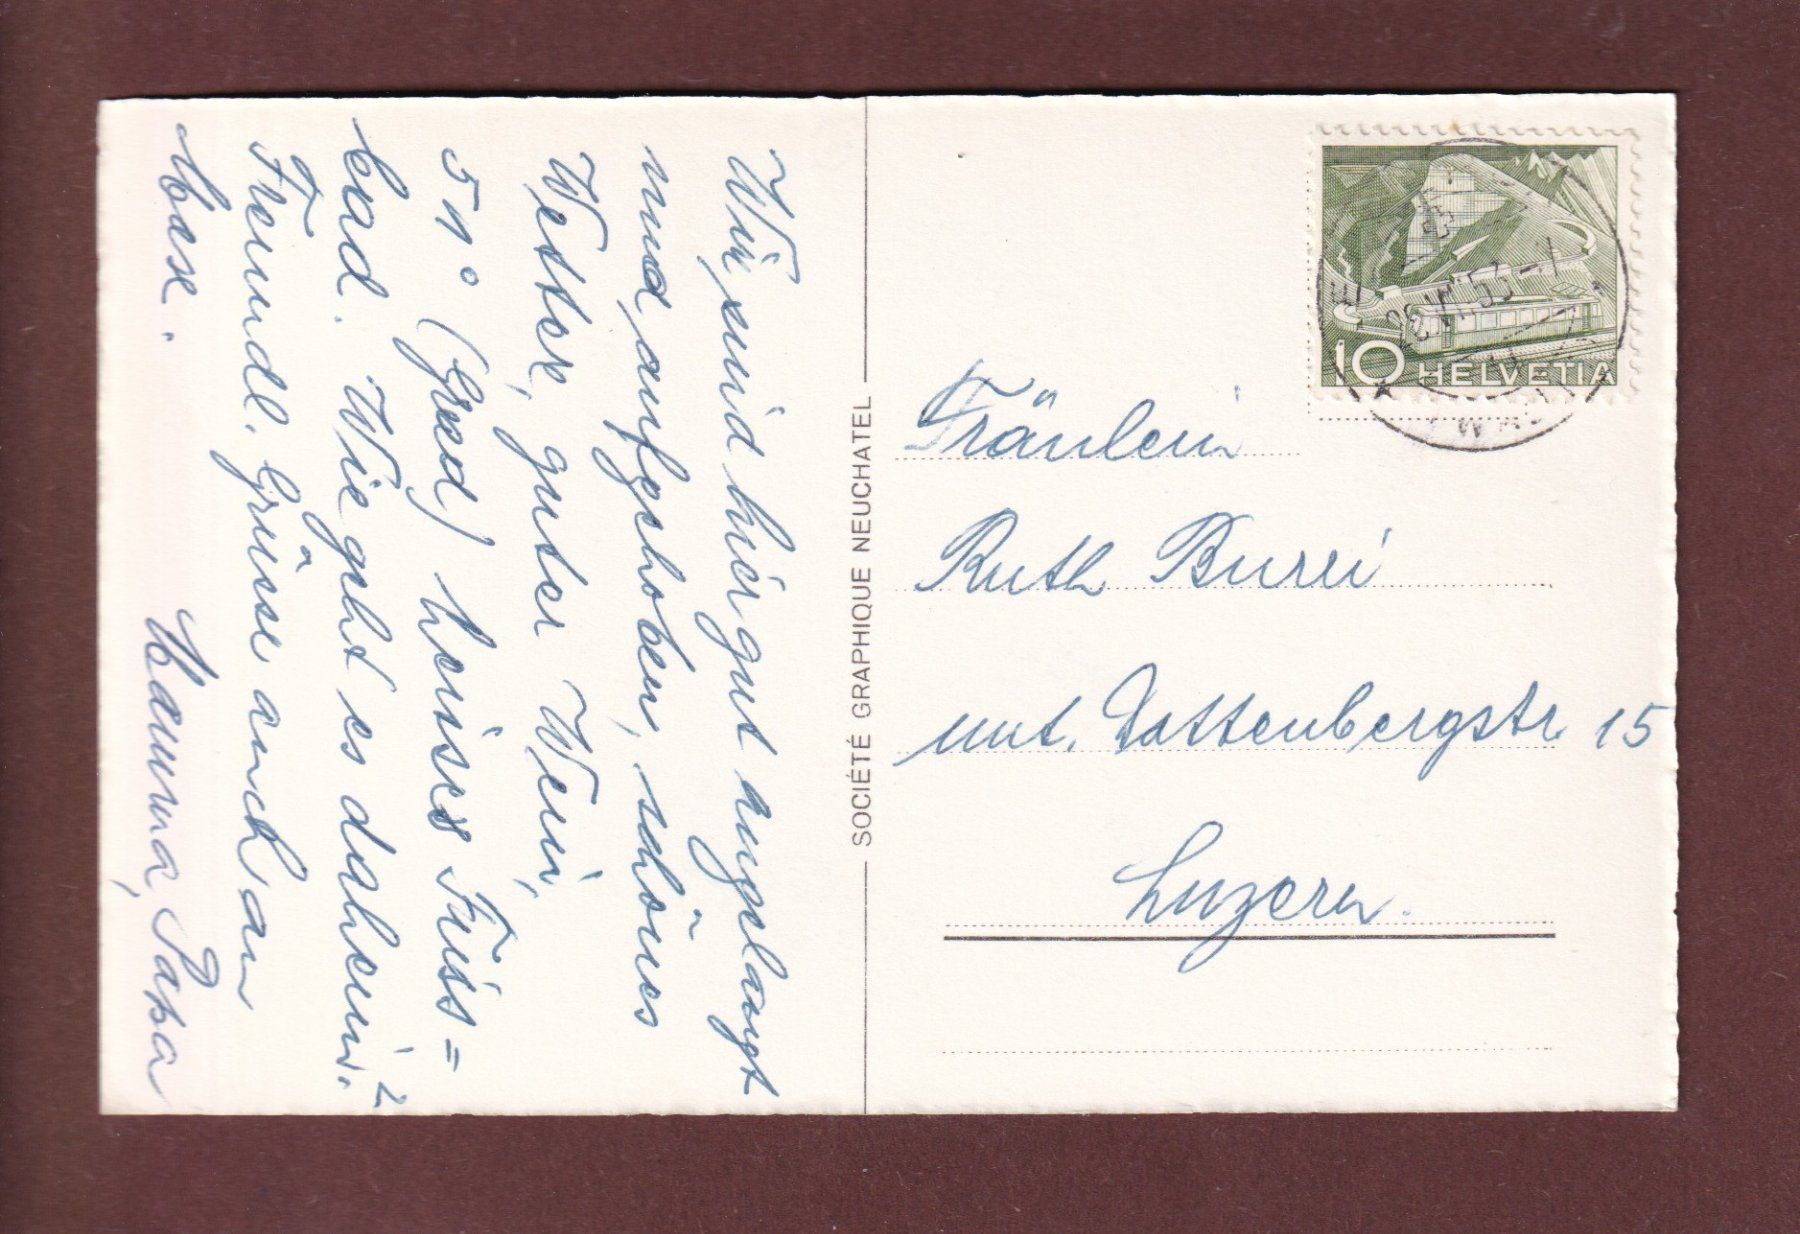 Wir sind hier gut angelangt
und aufgehoben, schönes
Wetter, guter Wein,
51° (Grad) heisses Fuss=
bad. Wie geht es daheim?
Freundl. Grüsse auch an
Max.
Mamma, Papa
SOCIÉTÉ GRAPHIQUE NEUCHATEL
10 HELVETIA
53
Fräulein
Ruth Burri
unt. Dattenbergstr 15
Luzern.